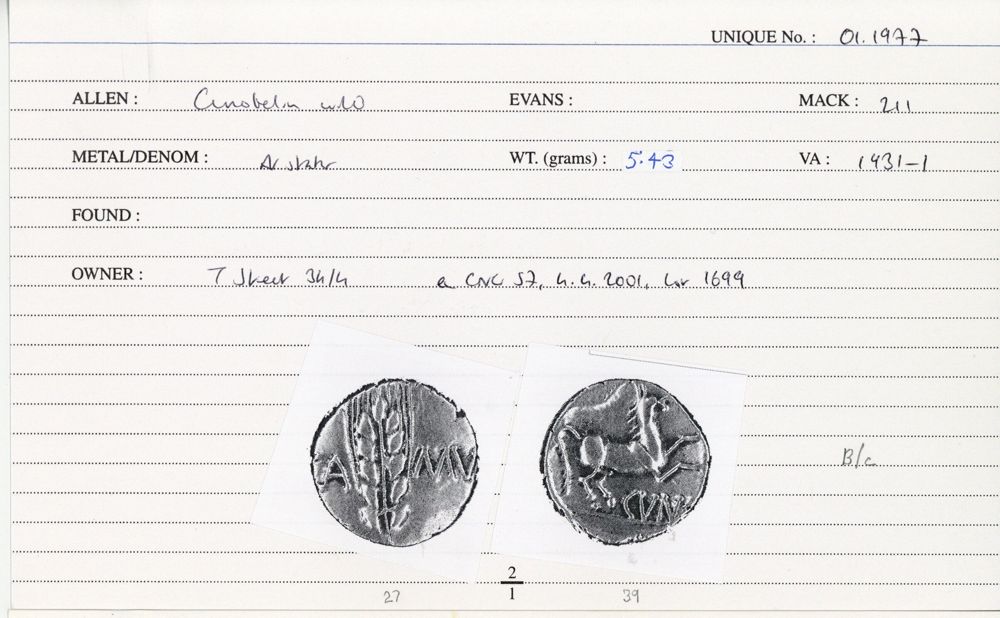 UNIQUE No. : 01.1977
ALLEN : Cunobelin wild EVANS : MACK : 211
METAL/DENOM : AV stater WT. (grams) : 5.43 VA : 1931-1
FOUND :
OWNER : 34/4 CNG 57, 4.4.2001, Lot 1699
A MV
CVN
B/c
2
1
27 39